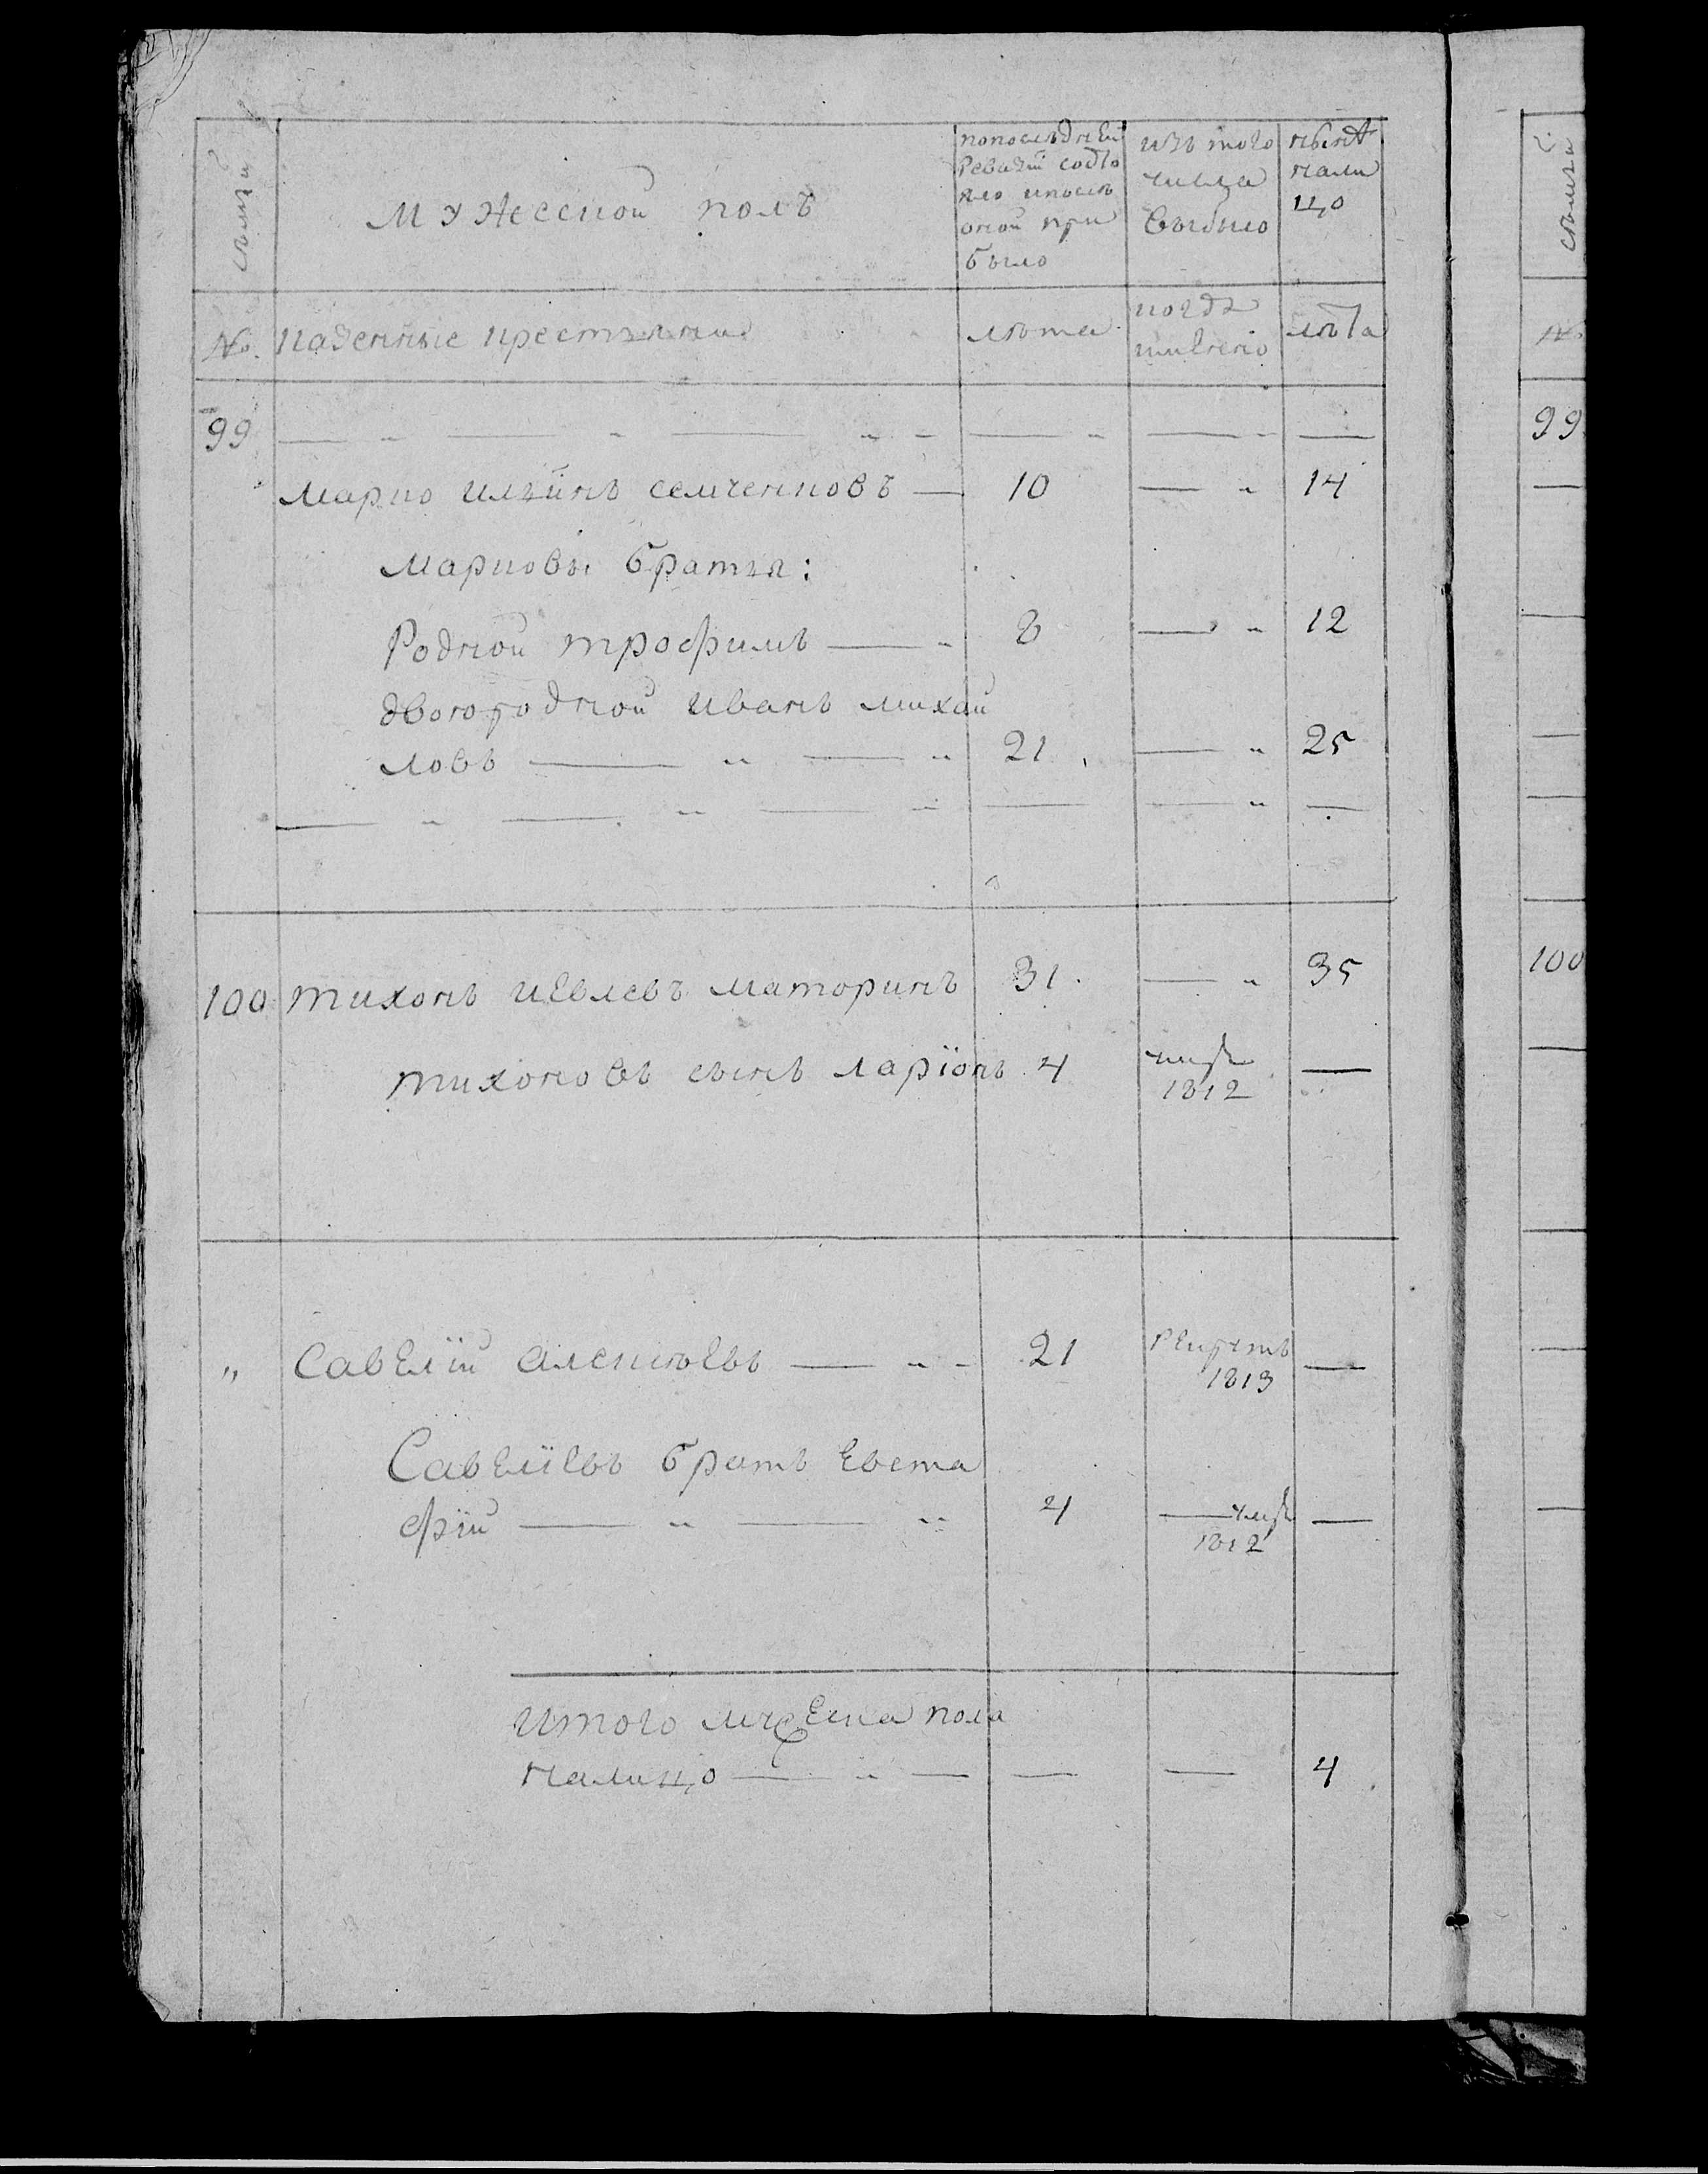 семьи
мужескои полъ
попоследнеи
Ревизiи состо
яло ипосле
онои при
было
изъ того
числа
выбыло
ныне
нали
цо
№. казенные крестьяне
лѣта
когда
лѣта
99 — „ — „ — „ — „ — „ —
Марко ильинъ семченковъ — 10 — „ 14
Марковы братья:
Роднои трофимъ — „ 8 — „ 12
двоюроднои иванъ михаи
ловъ — „ — „ 21 — „ 25
— „ — „ — „ — — „ —
100 тихонъ иевлевъ маторинъ 31 — „ 35
тихоновъ сынъ ларiонъ 4 умре —
1812
„ Савелiи алексѣевъ — „ - 21 Рекрутъ —
1813
Савелiевъ братъ Евста
фiи — „ — „ 4 — умре —
1812
итого мужеска пола
налицо — „ — — — 4
семьи
№
99
100